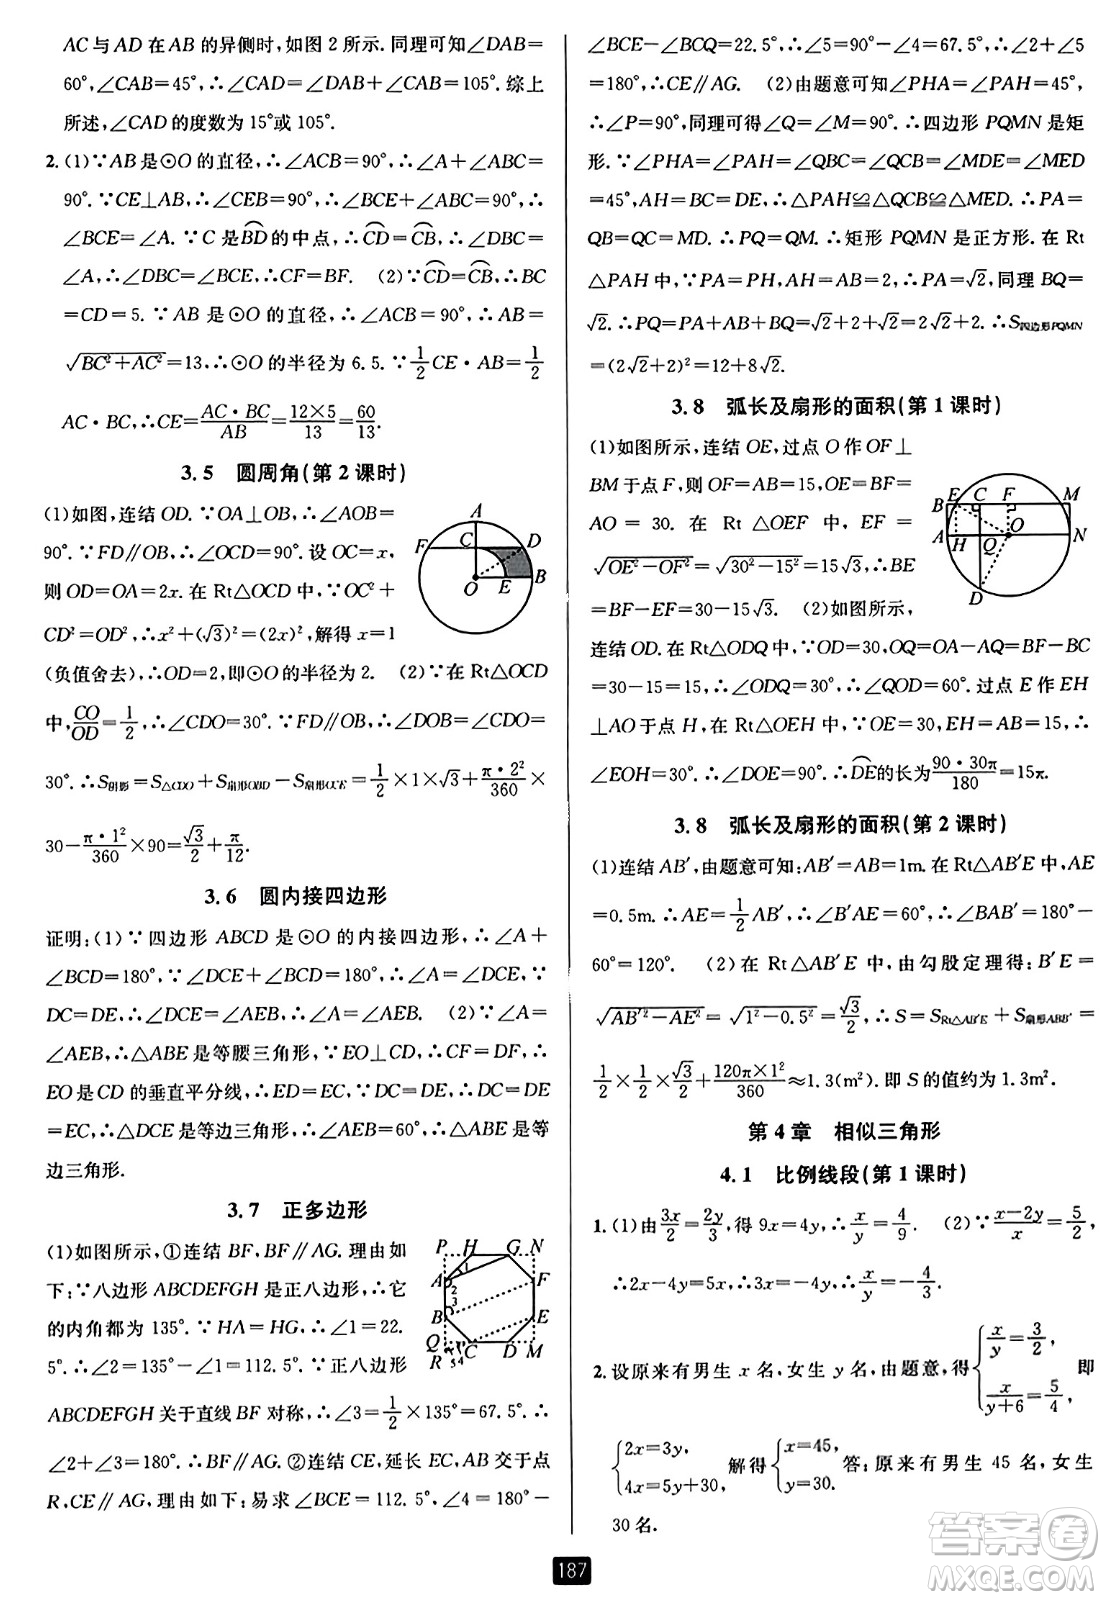 AC与AD在AB的异侧时,如图2所示.同理可知∠DAB=
60°,∠CAB=45°,∴∠CAD=∠DAB+∠CAB=105°.综上
所述,∠CAD的度数为15°或105°.
2.(1)∵AB是⊙O的直径,∴∠ACB=90°,∴∠A+∠ABC=
90°.∵CE⊥AB,∴∠CEB=90°,∴∠BCE+∠ABC=90°,∴
∠BCE=∠A.∵C是BD⌒的中点,∴CD⌒=CB⌒,∴∠DBC=
∠A,∴∠DBC=∠BCE,∴CF=BF. (2)∵CD⌒=CB⌒,∴BC
=CD=5.∵AB是⊙O的直径,∴∠ACB=90°,∴AB=
√(BC²+AC²)=13,∴⊙O的半径为6.5.∵1/2 CE·AB=1/2
AC·BC,∴CE=AC·BC/AB=12×5/13=60/13.
3.5 圆周角(第2课时)
(1)如图,连结OD.∵OA⊥OB,∴∠AOB=
90°.∵FD∥OB,∴∠OCD=90°.设OC=x,
则OD=OA=2x.在Rt△OCD中,∵OC²+
CD²=OD²,∴x²+(√3)²=(2x)²,解得x=1
(负值舍去),∴OD=2,即⊙O的半径为2. (2)∵在Rt△OCD
中,CO/OD=1/2,∴∠CDO=30°.∵FD∥OB,∴∠DOB=∠CDO=
30°.∴S阴影=S△CDO+S扇形OBD-S扇形OCE=1/2×1×√3+π·2²/360×
30-π·1²/360×90=√3/2+π/12.
A
F C D
O E B
3.6 圆内接四边形
证明:(1)∵四边形ABCD是⊙O的内接四边形,∴∠A+
∠BCD=180°,∵∠DCE+∠BCD=180°,∴∠A=∠DCE,∵
DC=DE,∴∠DCE=∠AEB,∴∠A=∠AEB. (2)∵∠A=
∠AEB,∴△ABE是等腰三角形,∵EO⊥CD,∴CF=DF,∴
EO是CD的垂直平分线,∴ED=EC,∵DC=DE,∴DC=DE
=EC,∴△DCE是等边三角形,∴∠AEB=60°,∴△ABE是等
边三角形.
3.7 正多边形
(1)如图所示,①连结BF,BF∥AG.理由如
下:∵八边形ABCDEFGH是正八边形,∴它
的内角都为135°.∵HA=HG,∴∠1=22.
5°.∴∠2=135°-∠1=112.5°.∵正八边形
ABCDEFGH关于直线BF对称,∴∠3=1/2×135°=67.5°.∴
∠2+∠3=180°,∴BF∥AG.②连结CE,延长EC,AB交于点
R,CE∥AG,理由如下:易求∠BCE=112.5°,∠4=180°-
P H G N
A 1 F
2
B 3 E
Q C D M
R 5 4
∠BCE-∠BCQ=22.5°,∴∠5=90°-∠4=67.5°,∴∠2+∠5
=180°,∴CE∥AG. (2)由题意可知∠PHA=∠PAH=45°,
∴∠P=90°,同理可得∠Q=∠M=90°.∴四边形PQMN是矩
形.∵∠PHA=∠PAH=∠QBC=∠QCB=∠MDE=∠MED
=45°,AH=BC=DE,∴△PAH≌△QBC≌△MED.∴PA=
QB=QC=MD.∴PQ=QM.∴矩形PQMN是正方形.在Rt
△PAH中,∵PA=PH,AH=AB=2,∴PA=√2,同理QB=
√2.∴PQ=PA+AB+BQ=√2+2+√2=2√2+2.∴S四边形PQMN
=(2√2+2)²=12+8√2.
3.8 弧长及扇形的面积(第1课时)
(1)如图所示,连结OE,过点O作OF⊥
BM于点F,则OF=AB=15,OE=BF=
AO=30.在Rt△OEF中,EF=
√(OE²-OF²)=√(30²-15²)=15√3,∴BE
=BF-EF=30-15√3. (2)如图所示,
连结OD.在Rt△ODQ中∵OD=30,OQ=OA-AQ=OA-BC
=30-15=15,∴∠ODQ=30°,∴∠QOD=60°.过点E作EH
⊥AO于点H,在Rt△OEH中∵OE=30,EH=AB=15,∴
∠EOH=30°.∴∠DOE=90°.∴DE⌒的长为90·30π/180=15π.
B E C F M
A H Q O N
D
3.8 弧长及扇形的面积(第2课时)
(1)连结AB′,由题意可知:AB′=AB=1m.在Rt△AB′E中,AE
=0.5m.∴AE=1/2 AB′,∴∠B′AE=60°,∴∠BAB′=180°-
60°=120°. (2)在Rt△AB′E中,由勾股定理得:B′E=
√(AB′²-AE²)=√(1²-0.5²)=√3/2,∴S=SRt△AB′E+S扇形ABB′=
1/2×1/2×√3/2+120π×1²/360≈1.3(m²).即S的值约为1.3m².
第4章 相似三角形
4.1 比例线段(第1课时)
1.(1)由3x/2=2y/3,得9x=4y,∴x/y=4/9. (2)∵x-2y/x=5/2,
∴2x-4y=5x,∴3x=-4y,∴x/y=-4/3.
2.设原来有男生x名,女生y名,由题意,得{x/y=3/2, x/y+6=5/4, 即
{2x=3y, 4x=5y+30, 解得{x=45, y=30. 答:原来有男生45名,女生
30名.
187
答案卷
MXQE.COM